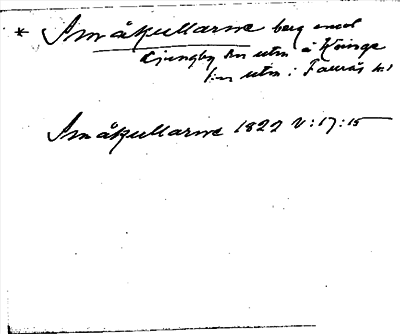 * Småkullarne berg emot
Ljungby sn utm å Köinge
sn utm i Faurås hd
Småkullarne 1822 V:17:15